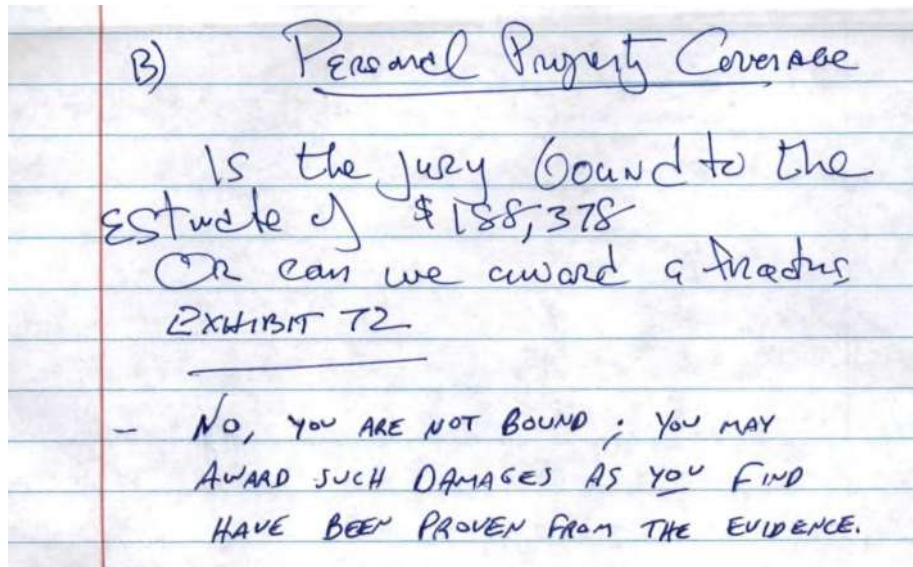 B) Personal Property Coverage
Is the jury bound to the
estimate of $188,378
Or can we award a fraction
EXHIBIT 72
- NO, YOU ARE NOT BOUND; YOU MAY
AWARD SUCH DAMAGES AS YOU FIND
HAVE BEEN PROVEN FROM THE EVIDENCE.